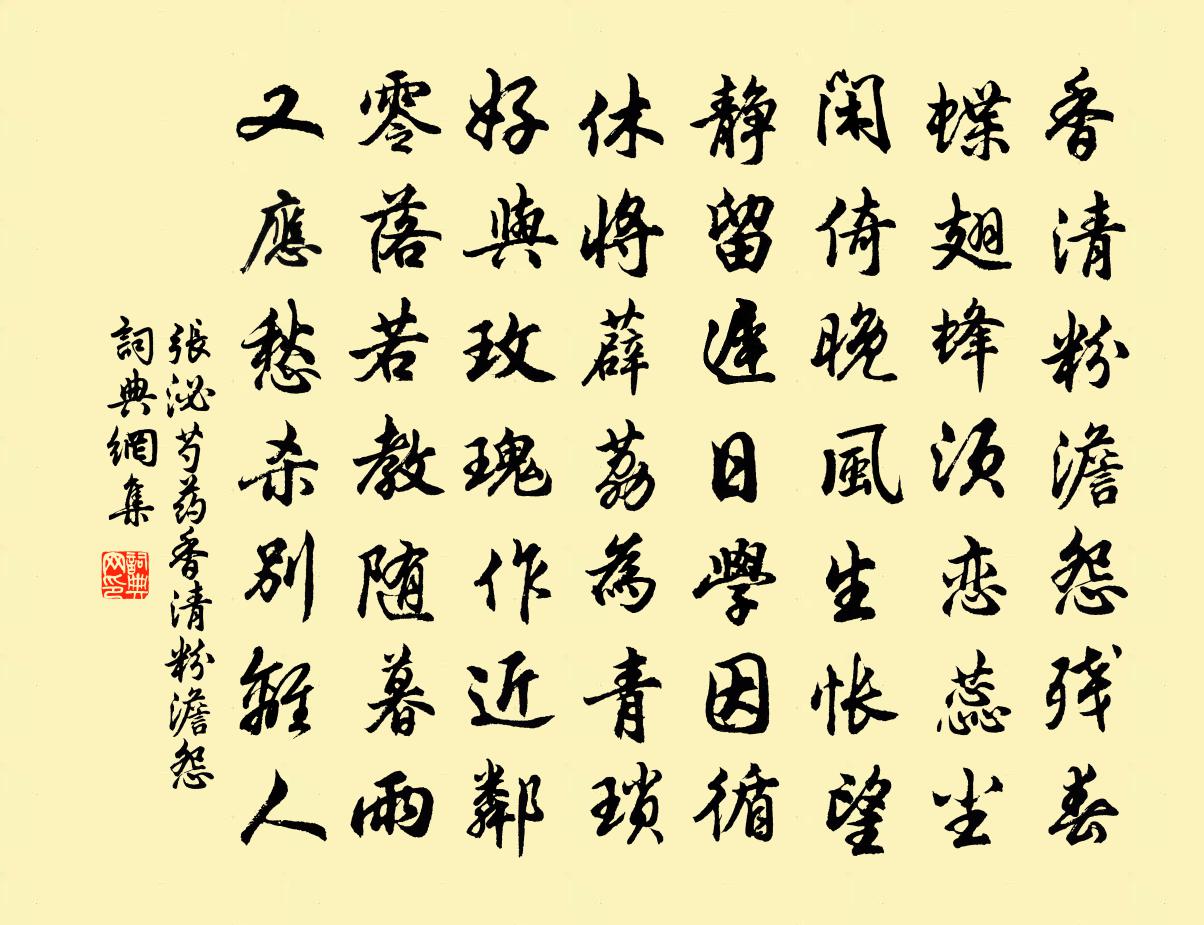 香清粉澹怨残春
蝶翅蜂须恋蕊尘
闲倚晚風生怅望
静留遲日學因循
休將薜荔為青瑣
好與玫瑰作近鄰
零落若教随暮雨
又應愁杀别離人
張泌芍药香清粉澹怨
詞典網集
詞典
网印